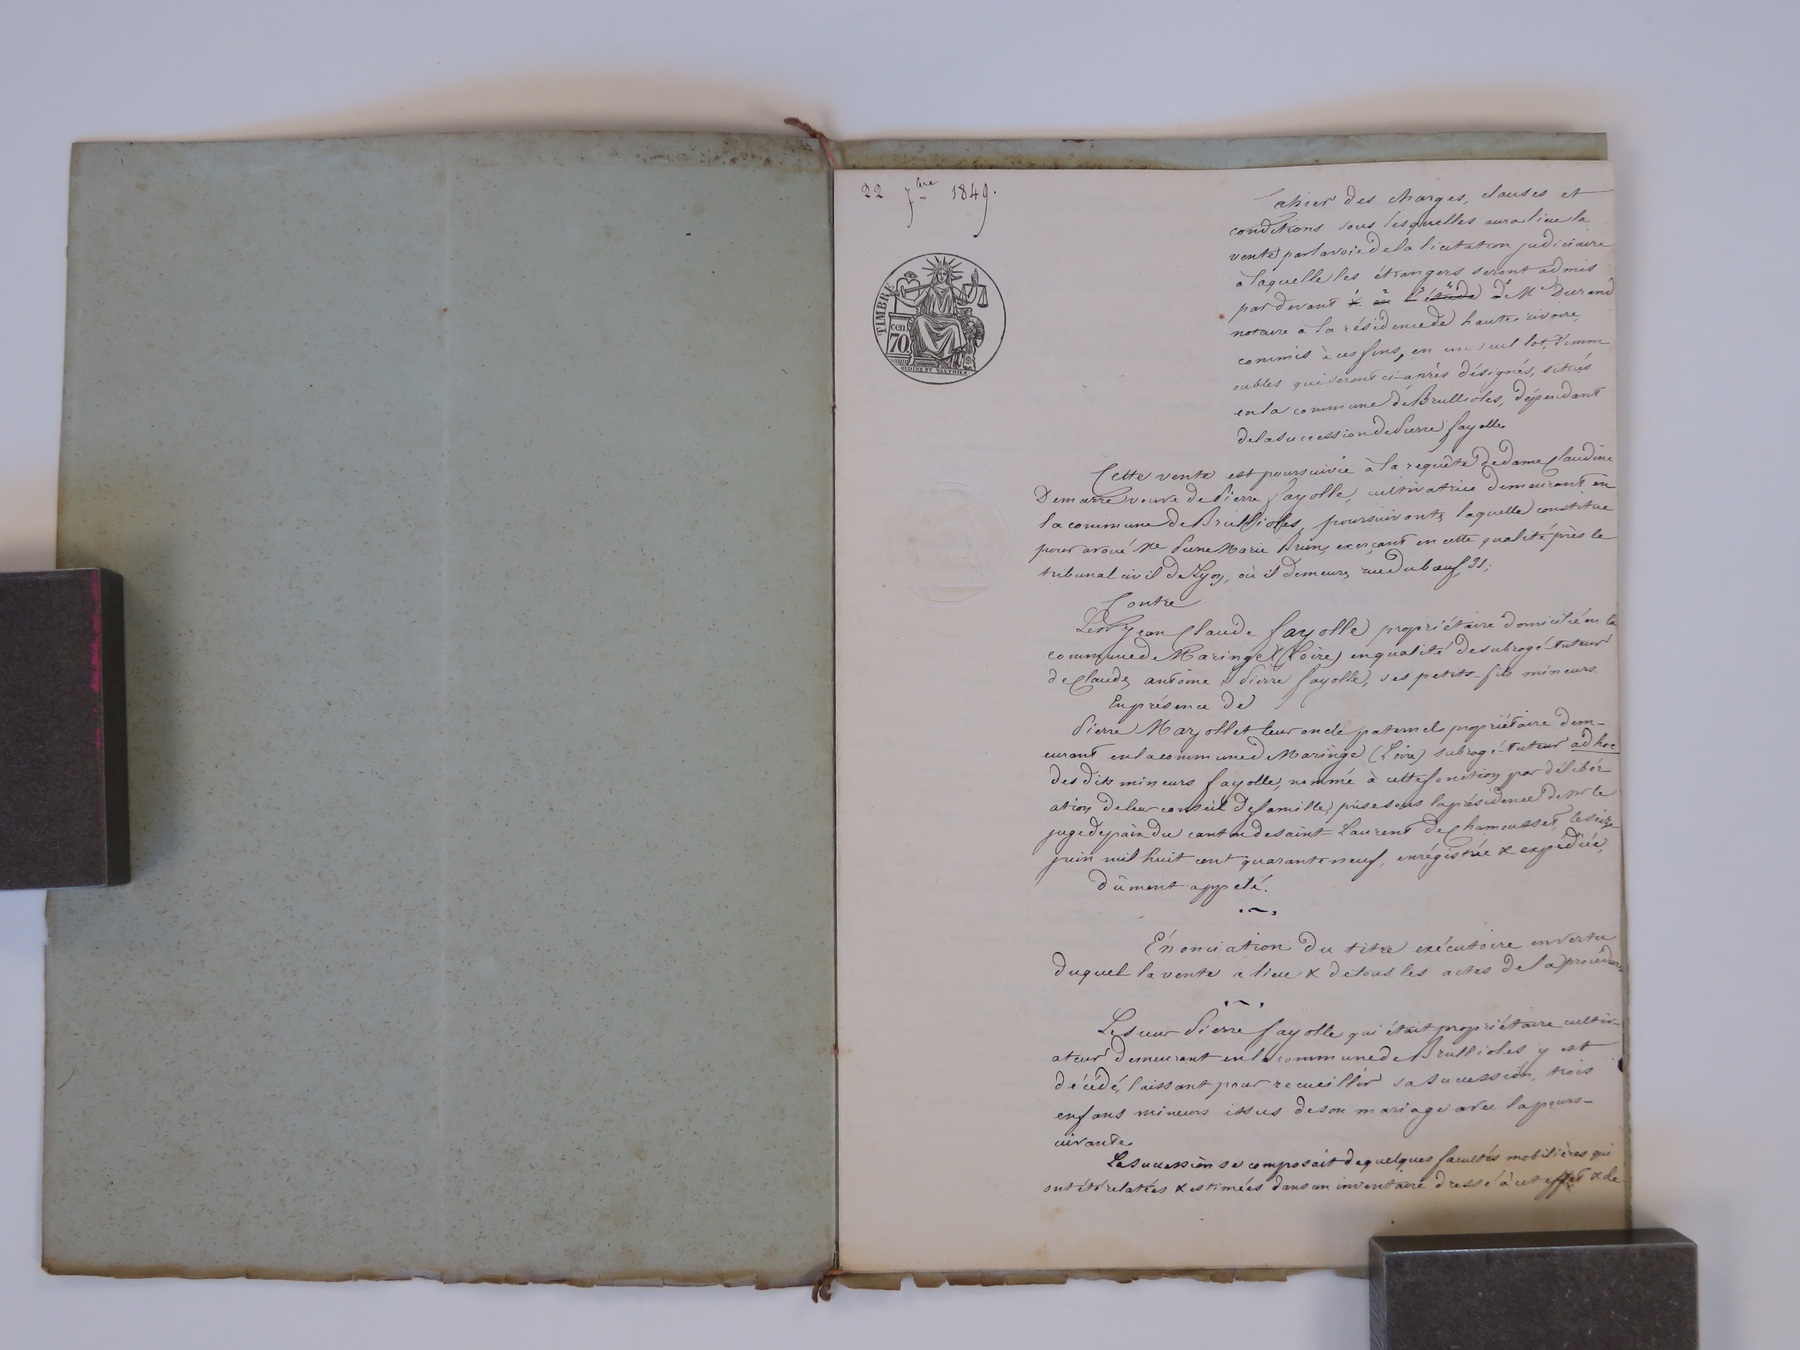 22 7bre 1849.
TIMBRE
cen
70
OUDINE ET VAUTHIER
Cahier des charges, clauses et
conditions sous lesquelles aura lieu la
vente par la voie de la licitation judiciaire
à laquelle les étrangers seront admis
par devant Me Durend
notaire à la résidence de haute rivoire,
commis à ces fins, en un seul lot, d'imm
eubles qui seront ci-après désignés, situés
en la commune de Brullioles, dépendant
de la succession de Pierre fayolle.
Cette vente est poursuivie à la requête de dame Claudine
Demarre veuve de Pierre fayolle, cultivatrice demeurant en
la commune de Brullioles, poursuivante, laquelle constitue
pour avoué Me Pierre Marie Brun, exerçant en cette qualité près le
tribunal civil de Lyon, où il demeure, rue du bœuf, 31;
Contre
Le sr Jean Claude fayolle propriétaire domicilié en la
commune de Maringe (Loire) en qualité de subrogé-tuteur
de Claude, antoine & Pierre fayolle, ses petits-fils mineurs.
En présence de
Pierre Mazollet leur oncle paternel propriétaire dem-
eurant en la commune de Maringe (Loire) subrogé-tuteur ad hoc
des dits mineurs fayolle, nommé à cette fonction par délibér
ation de leur conseil de famille, prise sous la présidence de Mr le
juge de paix du canton de saint-Laurent de Chamousset, le seize
juin mil huit cent quarante neuf, enrégistrée & expédiée,
dûment appelé.
Énonciation du titre exécutoire en vertu
duquel la vente a lieu & de tous les actes de la procédure
Le sieur Pierre fayolle qui était propriétaire cultiv-
ateur demeurant en la commune de Brullioles y est
décédé, laissant pour recueillir sa succession, trois
enfans mineurs issus de son mariage avec la pours-
uivante.
La succession se composait de quelques facultés mobilières qui
ont été relatées & estimées dans un inventaire dressé à cet effet & de